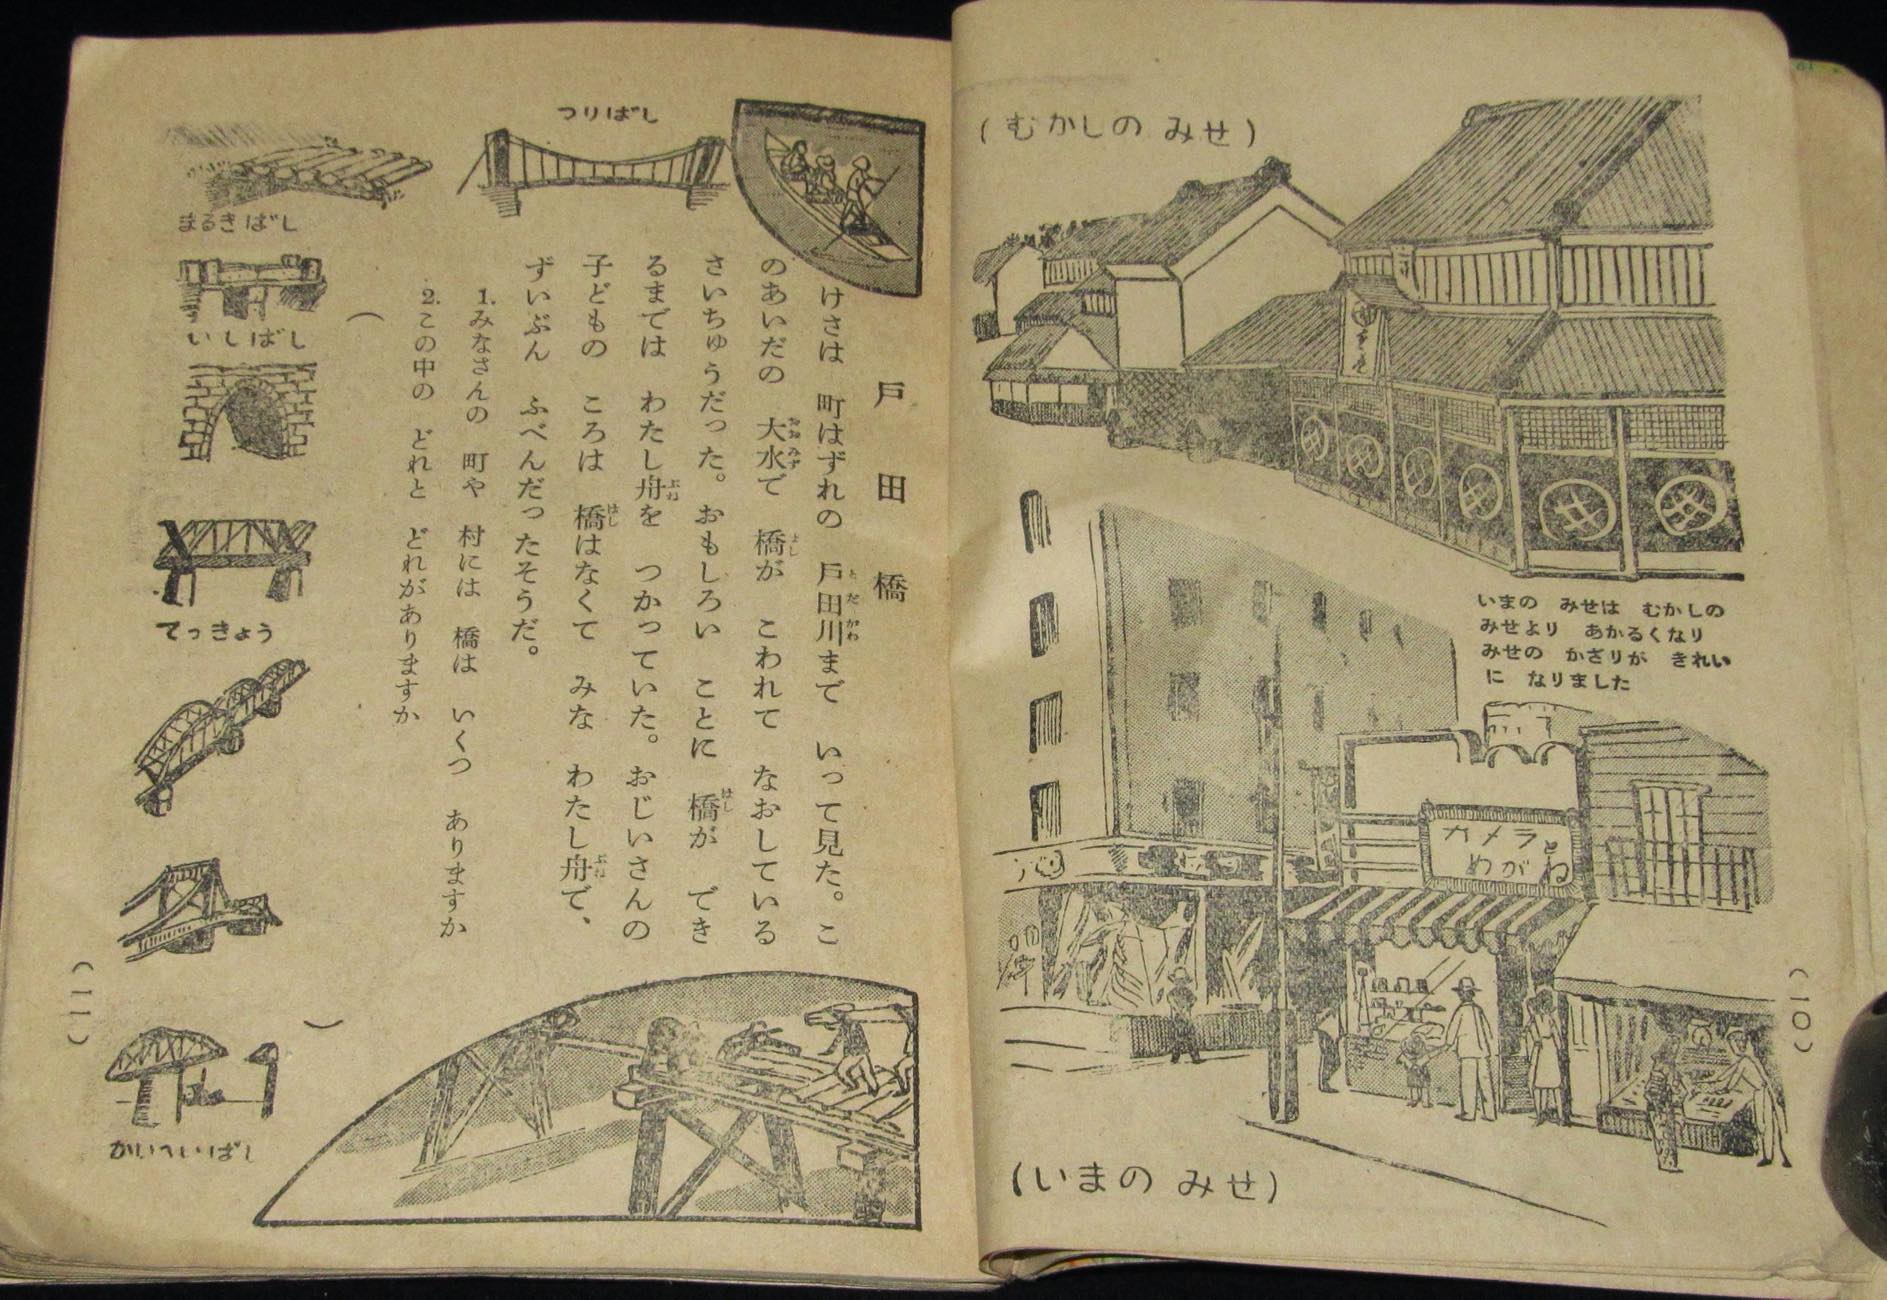 (むかしの みせ)
いまの みせは むかしの
みせより あかるくなり
みせの かざりが きれい
に なりました
カメラと
めがね
(いまの みせ)
(10)
戸田橋
けさは 町はずれの 戸田川まで いって見た。こ
のあいだの 大水で 橋が こわれて なおしている
さいちゅうだった。おもしろい ことに 橋が でき
るまでは わたし舟を つかっていた。おじいさんの
子どもの ころは 橋はなくて みな わたし舟で、
ずいぶん ふべんだったそうだ。
1.みなさんの 町や 村には 橋は いくつ ありますか
2.この中の どれと どれがありますか
( )
つりばし
まるきばし
いしばし
てっきょう
かいへいばし
(11)